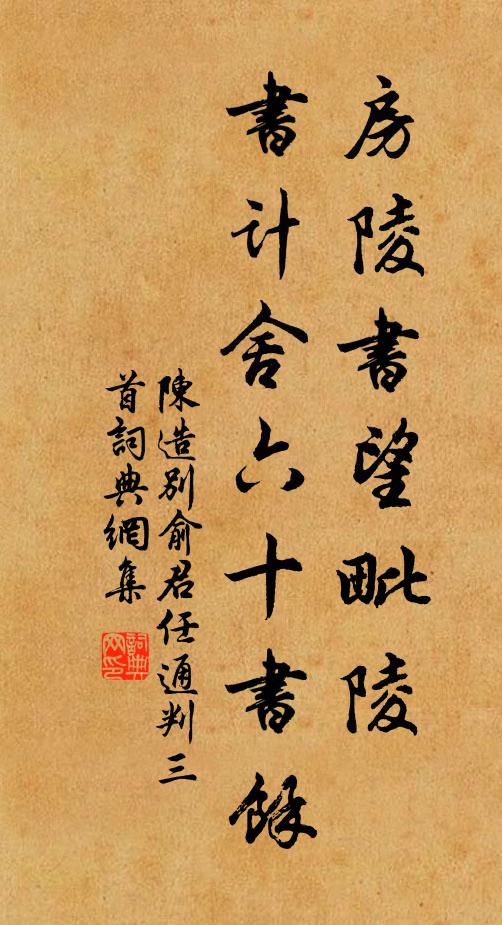 房陵書望毗陵
書计舍六十書餘
陳造别俞君任通判三
首詞典網集
詞典網印